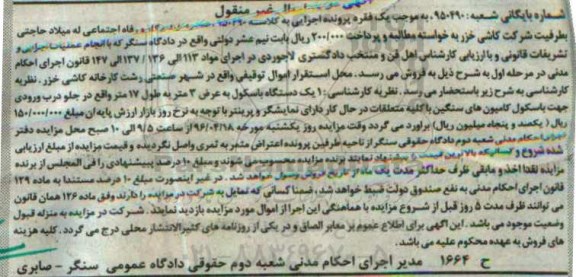 مال غیر منقول
شماره بایگانی شعبه: ۹۵۰۴۹۰ به موجب یک فقره پرونده اجرایی به کلاسه ۹۵۰۴۹۰ رفاه اجتماعی له میلاد حاجتی
بطرفیت شرکت کاشی خزر به خواسته مطالبه و پرداخت ۲۰۰/۰۰۰ ریال بابت نیم عشر دولتی واقع در دادگاه سنگر که با انجام عملیات اجرایی و
تشریفات قانونی و با ارزیابی کارشناس اهل فن و منتخب دادگستری لاجوردی در اجرای مواد ۱۱۳ الی ۱۲۶ / ۱۳۷ الی ۱۴۷ قانون اجرای احکام
مدنی در مرحله اول به شرح ذیل به فروش می رسد. محل استقرار اموال توقیفی واقع در شهر صنعتی رشت کارخانه کاشی خزر. نظریه
کارشناسی به شرح زیر باستحضار می رسد. نظریه کارشناسی: ۱۰ یک دستگاه باسکول به عرض ۳ متر به طول ۱۷ متر واقع در جلو درب ورودی
جهت باسکول کامیون های سنگین با کلیه متعلقات در حال کار دارای نمایشگر و پرینتر با توجه به نرخ روز بازار ارزش پایه ان مبلغ ۱۵۰/۰۰۰/۰۰۰
ریال (یکصد و پنجاه میلیون ریال) براورد می گردد وقت مزایده روز یکشنبه مورخه ۹۶/۰۴/۱۸ از ساعت ۹/۵ الی ۱۰ صبح محل مزایده دفتر
اجرای احکام مدنی شعبه دوم دادگاه حقوقی سنگر از ناحیه طرفین پرونده اعتراض مثمر به ثمری واصل نگردیده و قیمت مزایده از مبلغ ارزیابی
شده شروع و کسانیکه بالاترین قیمت را پیشنهاد نمایند برنده مزایده محسوب می شوند و مبلغ ۱۰ درصد پیشنهادی را فی المجلس از برنده
مزایده نقدا اخذ و مابقی ظرف حداکثر مدت یک ماه از تاریخ فروش وصول خواهد شد. در غیر اینصورت مبلغ ۱۰ درصد مستندا به ماده ۱۲۹
قانون اجرای احکام مدنی به نفع صندوق دولت ضبط خواهد شد، ضمنا کسانی که تمایل به شرکت در مزایده را دارند وفق ماده ۱۲۶ همان قانون
می توانند ظرف مدت ۵ روز قبل از شروع مزایده با هماهنگی این اجرا از اموال مورد مزایده بازدید نمایند. شرکت در مزایده به منزله قبول
وضعیت موجود می باشد. این آگهی برای اطلاع عموم بر معابر الصاق و در یکی از روزنامه های کثیرالانتشار محلی درج می گردد. کلیه هزینه
های فروش به عهده محکوم علیه می باشد.
ح ۱۶۶۴ مدیر اجرای احکام مدنی شعبه دوم حقوقی دادگاه عمومی سنگر - صابری